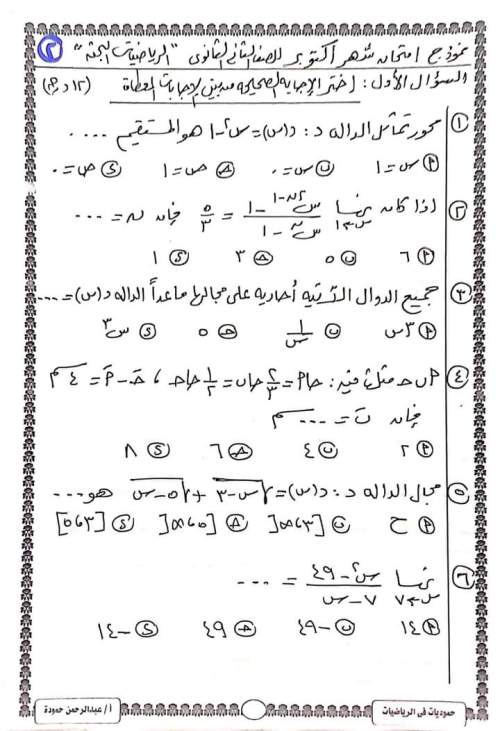 نموذج امتحان شهر أكتوبر للصف الثاني الثانوى "الرياضيات البحتة" (٢)
السؤال الأول: اختر الإجابة الصحيحة من بين الإجابات المعطاة (١٢ درجة)
(١) محور تماثل الدالة د: د(س) = س² - ١ هو المستقيم ....
(أ) س = ١ (ب) س = ٠ (ج) ص = ١ (د) ص = ٠
(٢) اذا كان نهــا س→١ (س^(٢ن-١) - ١)/(س^ن - ١) = ٥/٣ فإن ن = ....
(أ) ٦ (ب) ٥ (ج) ٣ (د) ١
(٣) جميع الدوال الآتية أحادية على مجالها ماعدا الدالة د(س) = ....
(أ) ٣س (ب) ١/س (ج) ٥ (د) س³
(٤) أ ب ج مثلث فيه: حا أ = ٢/٣ حا ب = ١/٢ حا ج ، جَ - أَ = ٤ سم
فإن بَ = .... سم
(أ) ٢ (ب) ٤ (ج) ٦ (د) ٨
(٥) مجال الدالة د: د(س) = √(س-٣) + √(٥-س) هو ....
(أ) ح (ب) [٣،∞[ (ج) [٥،∞[ (د) [٣،٥]
(٦) نهــا س→٧ (س² - ٤٩)/(٧ - س) = ....
(أ) ١٤ (ب) -٤٩ (ج) ٤٩ (د) -١٤
حموديات فى الرياضيات
أ / عبدالرحمن حمودة